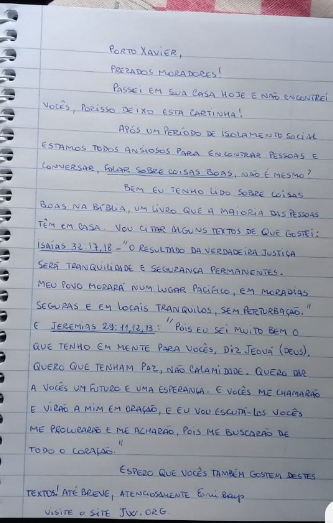 PORTO XAVIER,
PREZADOS MORADORES!
PASSEI EM SUA CASA HOJE E NÃO ENCONTREI
VOCÊS, PORISSO DEIXO ESTA CARTINHA!
APÓS UM PERÍODO DE ISOLAMENTO SOCIAL
ESTAMOS TODOS ANSIOSOS PARA ENCONTRAR PESSOAS E
CONVERSAR, FALAR SOBRE COISAS BOAS, NÃO É MESMO?
BEM EU TENHO LIDO SOBRE COISAS
BOAS NA BÍBLIA, UM LIVRO QUE A MAIORIA DAS PESSOAS
TÊM EM CASA. VOU CITAR ALGUNS TEXTOS DE QUE GOSTEI:
ISAÍAS 32:17,18 - "O RESULTADO DA VERDADEIRA JUSTIÇA
SERÁ TRANQUILIDADE E SEGURANÇA PERMANENTES.
MEU POVO MORARÁ NUM LUGAR PACÍFICO, EM MORADIAS
SEGURAS E EM LOCAIS TRANQUILOS, SEM PERTURBAÇÃO."
E JEREMIAS 29:11,12,13: "POIS EU SEI MUITO BEM O
QUE TENHO EM MENTE PARA VOCÊS, DIZ JEOVÁ (DEUS).
QUERO QUE TENHAM PAZ, NÃO CALAMIDADE. QUERO DAR
A VOCÊS UM FUTURO E UMA ESPERANÇA. E VOCÊS ME CHAMARÃO
E VIRÃO A MIM EM ORAÇÃO, E EU VOU ESCUTÁ-LOS VOCÊS
ME PROCURARÃO E ME ACHARÃO, POIS ME BUSCARÃO DE
TODO O CORAÇÃO."
ESPERO QUE VOCÊS TAMBÉM GOSTEM DESTES
TEXTOS! ATÉ BREVE, ATENCIOSAMENTE
VISITE O SITE JW.ORG.